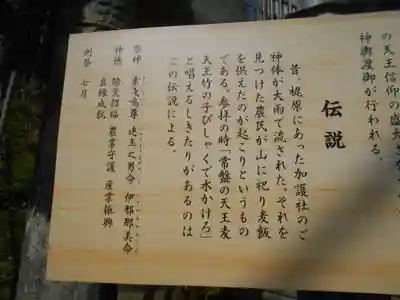 の天王信仰の盛大さ
神輿渡御が行われる。
伝説
昔、梶原にあった加護社のご
神体が大雨で流された。それを
見つけた農民が山に祀り麦飯
を供えたのが起こりというもの
である。参拝の時「常盤の天王麦
天王竹の子びしゃくで水かけろ」
と唱えるしきたりがあるのは
この伝説による。
祭神 素戔嗚尊 速玉之男命 伊邪那美命
神徳 除災招福 農業守護 産業振興
良縁成就
例祭 七月